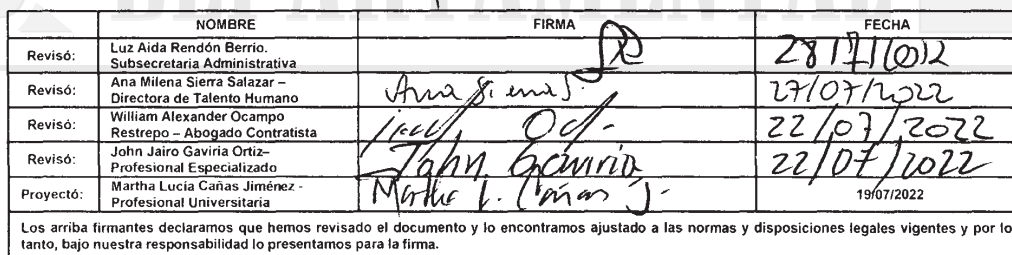 NOMBRE FIRMA FECHA
Revisó: Luz Aida Rendón Berrio.
Subsecretaria Administrativa
Revisó: Ana Milena Sierra Salazar –
Directora de Talento Humano
Ana Sierra S. 27/07/2022
Revisó: William Alexander Ocampo
Restrepo – Abogado Contratista
22/07/2022
Revisó: John Jairo Gaviria Ortiz–
Profesional Especializado
John Gaviria 22/07/2022
Proyectó: Martha Lucía Cañas Jiménez -
Profesional Universitaria
Martha L. Cañas J. 19/07/2022
Los arriba firmantes declaramos que hemos revisado el documento y lo encontramos ajustado a las normas y disposiciones legales vigentes y por lo
tanto, bajo nuestra responsabilidad lo presentamos para la firma.